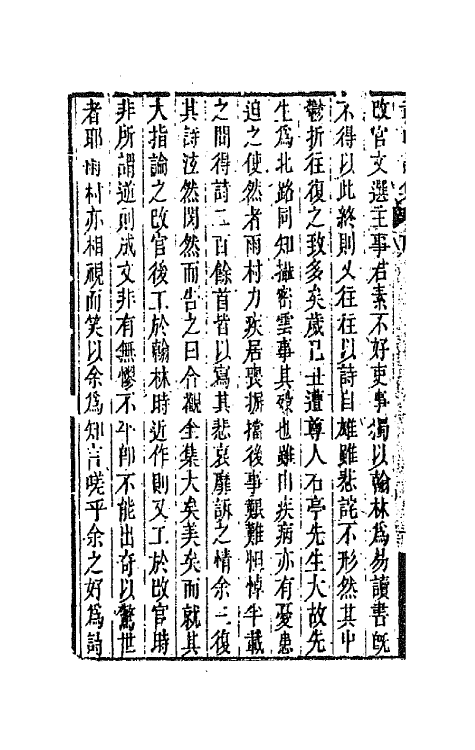 改官文選主事君素不好吏事獨以翰林為易讀書既
不得以此終則又往往以詩自雄雖悲詫不形然其中
鬱折往復之致多矣歲己丑遭尊人石亭先生大故先
生為北路同知攝密雲事其歿也雖由疾病亦有憂患
迫之使然者雨村力疾居喪摒擋後事艱難怛悼半載
之間得詩二百餘首皆以寫其悲哀靡訴之情余三復
其詩泫然閔然而告之曰合觀全集大矣美矣而就其
大指論之改官後工於翰林時近作則又工於改官時
非所謂逆則成文非有無憀不平即不能出奇以驚世
者耶雨村亦相視而笑以余為知言嗟乎余之好為詩